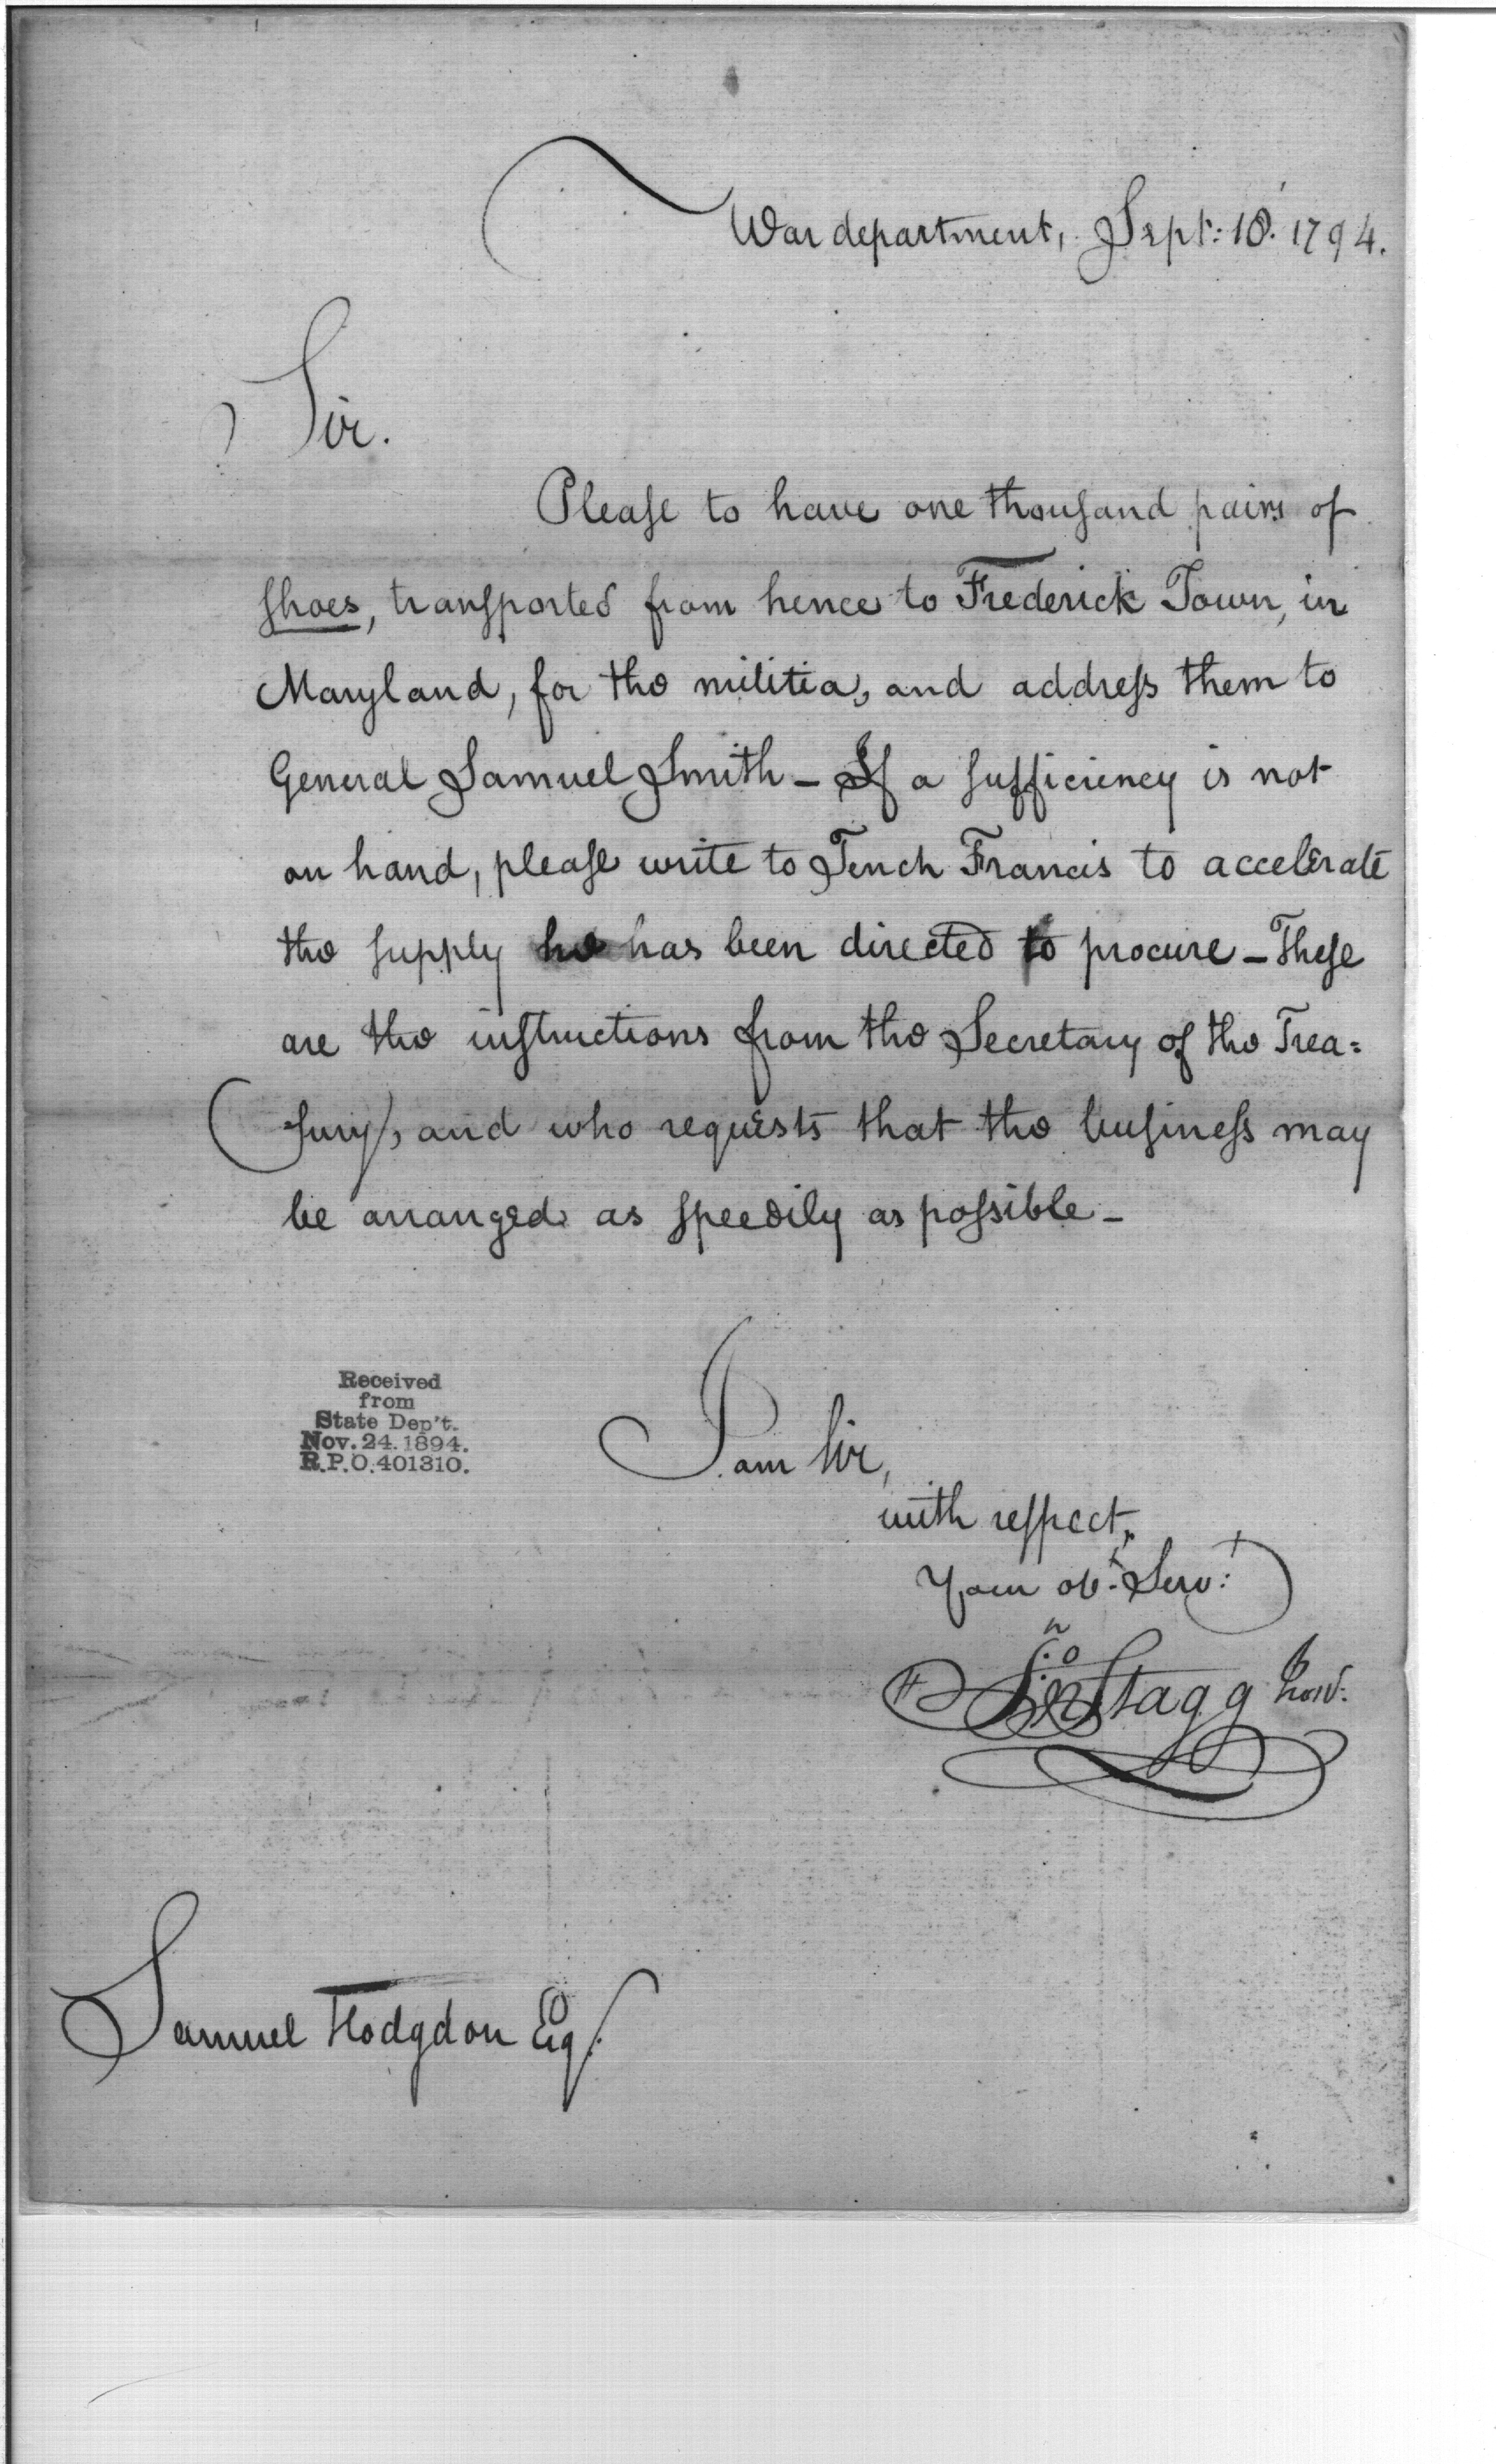 War department, Sept: 18. 1794.
Sir.
Please to have one thousand pairs of
shoes, transported from hence to Frederick Town, in
Maryland, for the militia, and address them to
General Samuel Smith – If a sufficiency is not
on hand, please write to Tench Francis to accelerate
the supply he has been directed to procure – These
are the instructions from the Secretary of the Trea=
sury, and who requests that the business may
be arranged as speedily as possible –
Received
from
State Dep't.
Nov. 24. 1894.
R.P.O. 401310.
I am Sir,
with respect,
Your obt. Servt:
Jno Stagg Junr:
Samuel Hodgdon Esq.